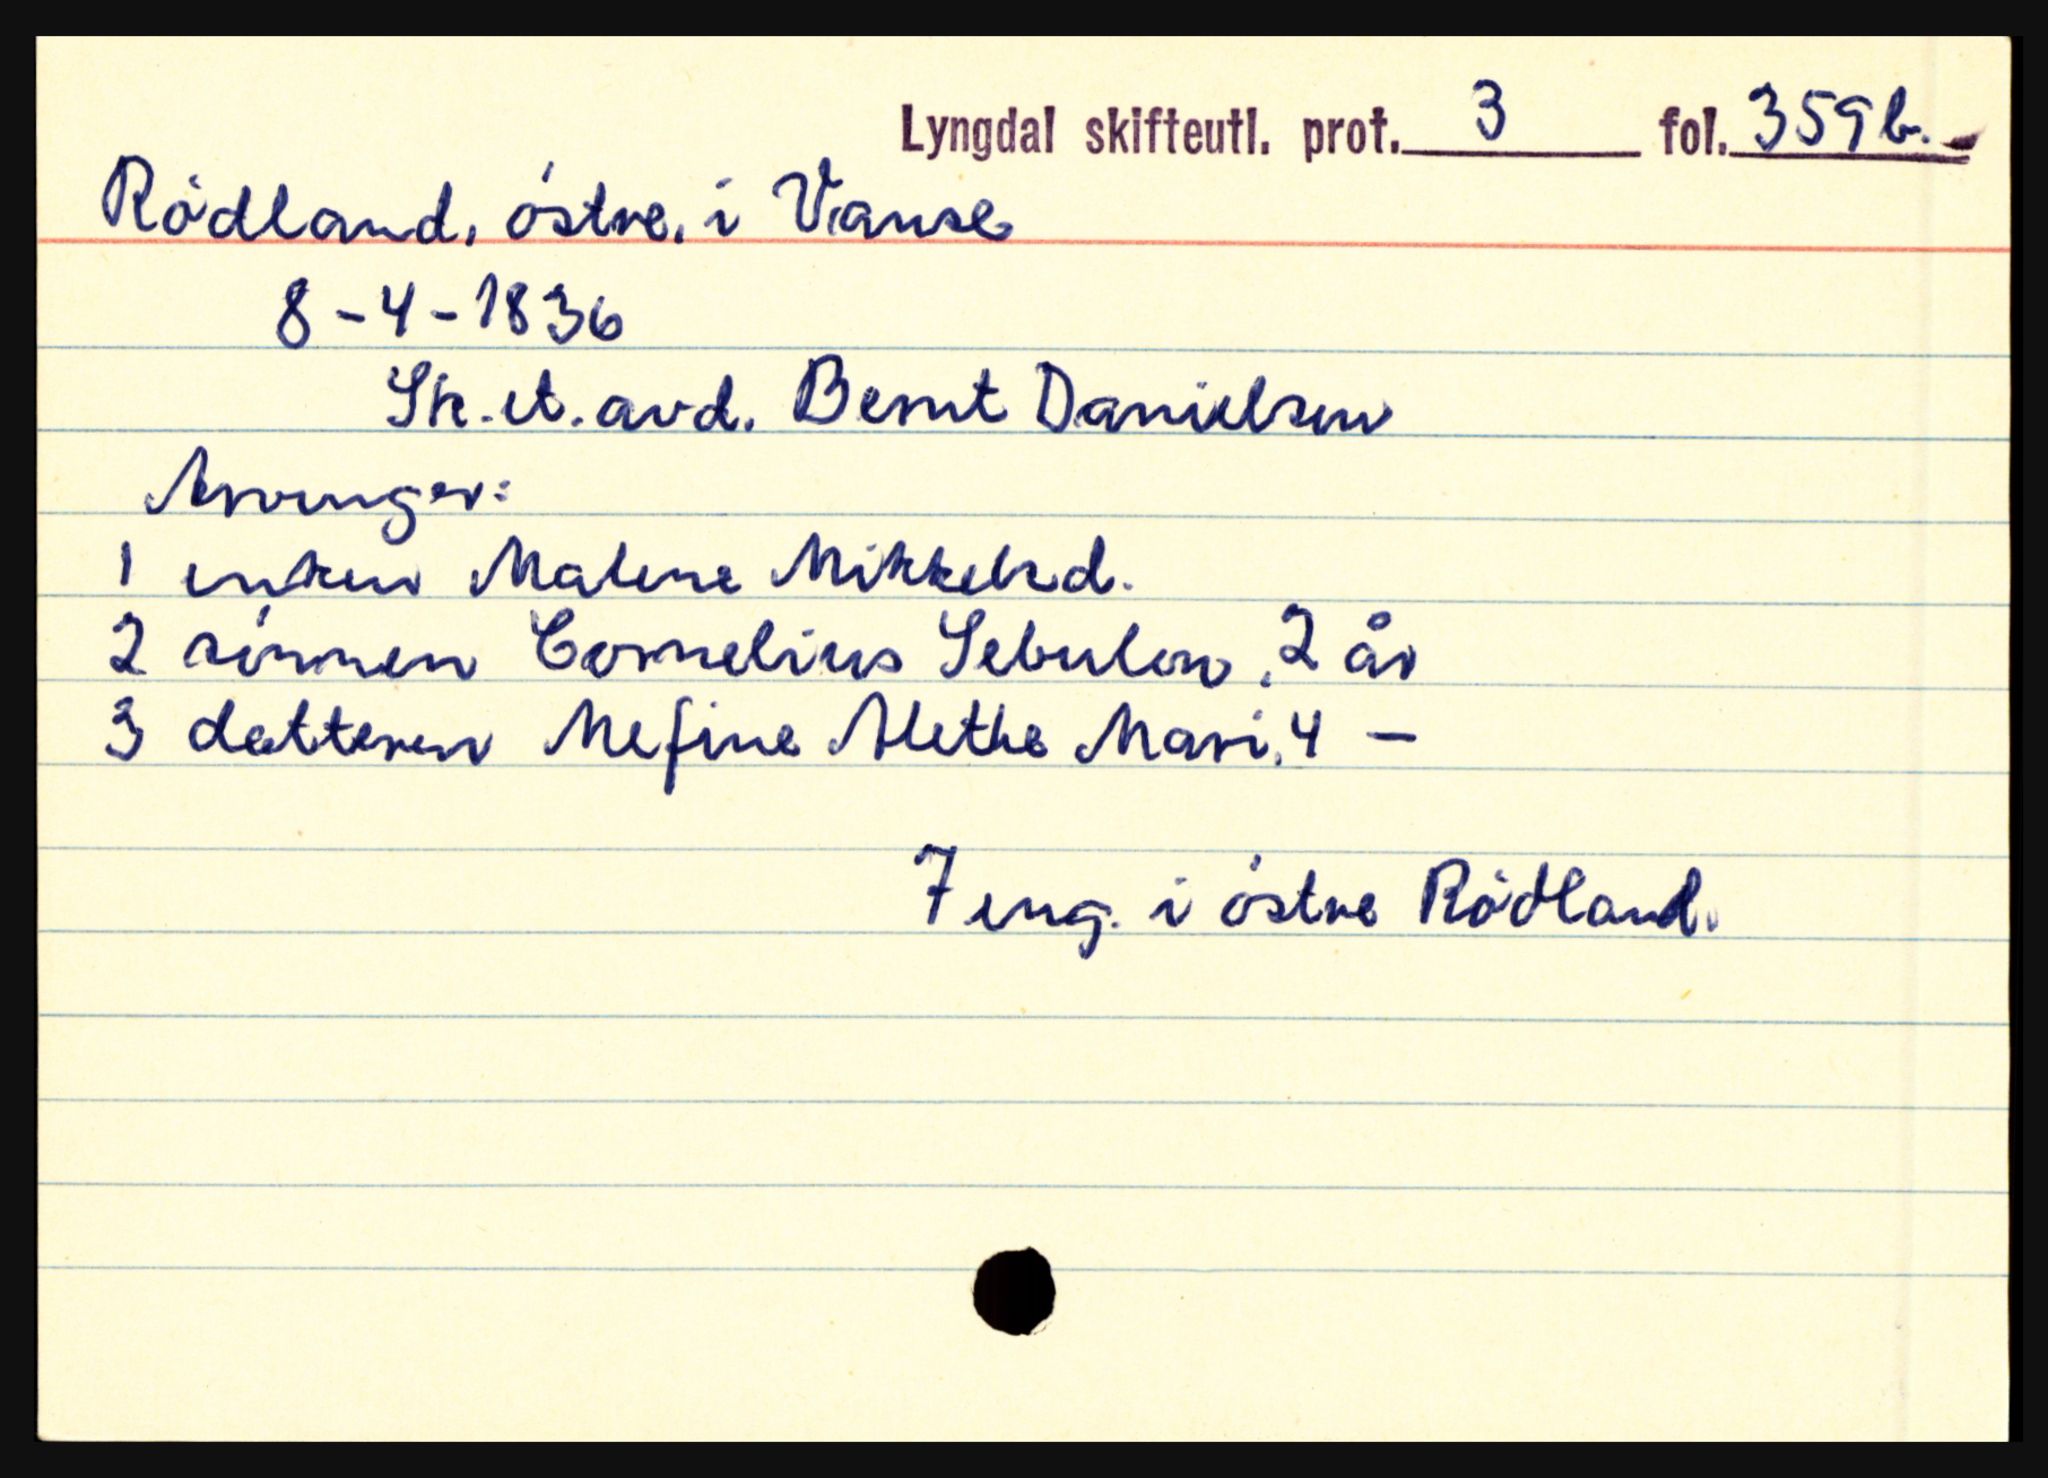 Lyngdal skifteutl. prot. 3 fol. 359b.
Rødland, østre, i Vanse
8-4-1836
Sk. et. avd. Bernt Danielsen
Arvinger:
1 enken Malene Mikkelsd.
2 sønnen Cornelius Sebulon, 2 år
3 datteren Nefine Alethe Mari, 4 —
7 eng. i østre Rødland.